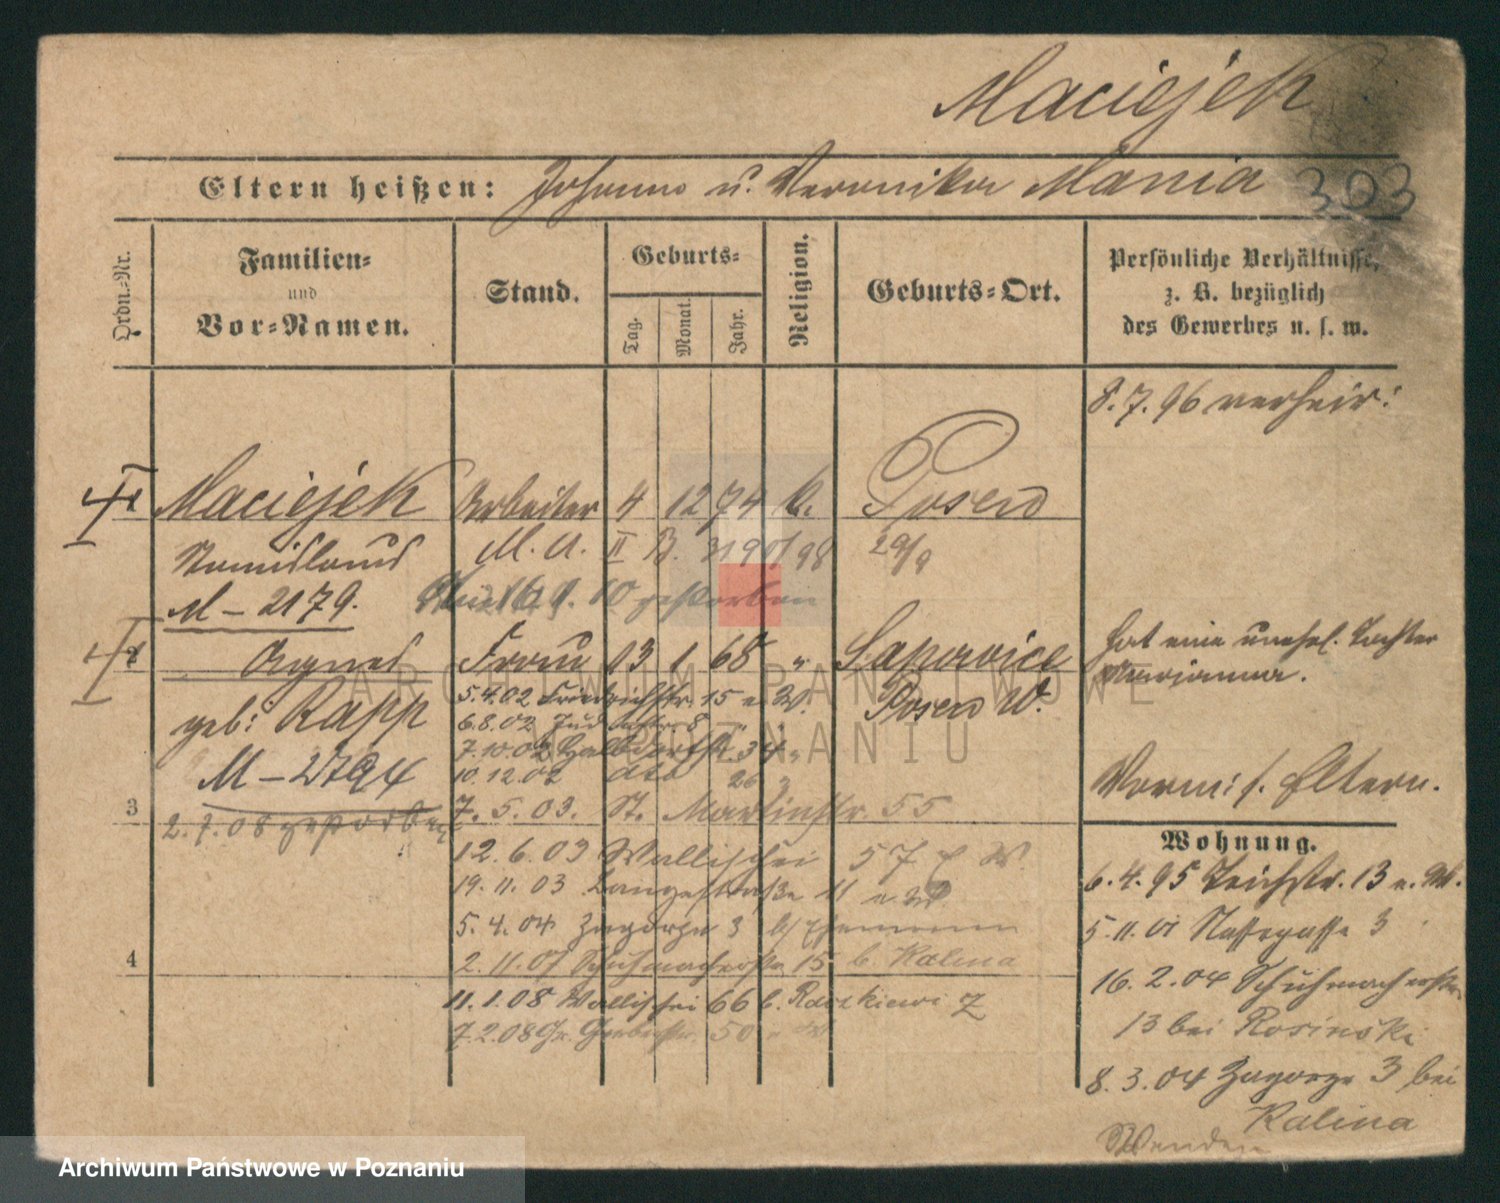 Maciejek
Eltern heißen: Johann u. Veronika Mania
303
Ordn.-Nr.
Familien- und Vor-Namen.
Stand.
Geburts-
Tag. Monat. Jahr.
Religion.
Geburts-Ort.
Persönliche Verhältnisse, z. B. bezüglich des Gewerbes u. s. w.
8. 7. 96 verheir:
1 Maciejek Arbeiter 4 12 74 k. Posen
Stanislaus M. A. II B. 98 29/9
M - 2179. gestorben
2 Agnes Frau 13 1 68 " Sapowice
Posen W.
hat eine unehel. Tochter
Marianna.
geb: Rapp
M - 2794
2. 7. 08 gestorben
5.4.02 Friedrichstr. 15 e. W.
6.8.02 8
7.10.02 Halbdorfstr. 34 "
10.12.02 dto 26
3
7. 5. 03. St. Martinstr. 55
12. 6. 03 Wallischei 57 W.
19. 11. 03 Langestraße 11 e. W.
5. 4. 04 Zagorze 3 b/
4
2. 11. 07 Schuhmacherstr. 15 b. Kalina
11. 1. 08 Wallischei 66 b. Raczkiewicz
7. 2. 08 Gr. Gerberstr. 50 e. W.
Vorm. s. Eltern.
Wohnung.
6. 4. 95 Teichstr. 13 e. W.
5. 11. 01 Nassegasse 3
16. 2. 04 Schuhmacherstr.
13 bei Rosinski
8. 3. 04 Zagorze 3 bei
Kalina
ARCHIWUM PAŃSTWOWE
W POZNANIU
Archiwum Państwowe w Poznaniu